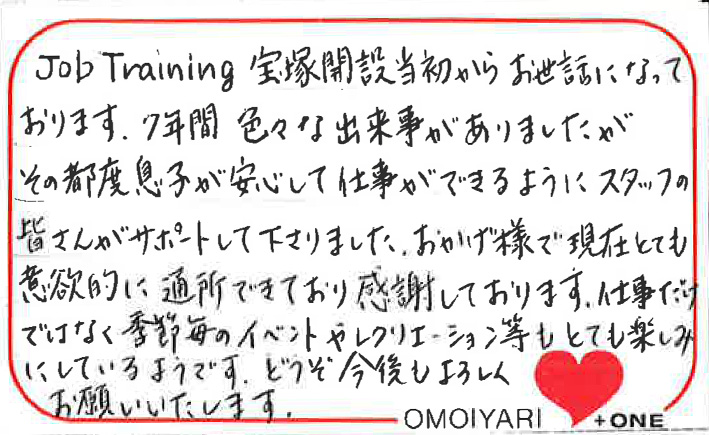 Job Training 宝塚開設当初からお世話になって
おります。7年間 色々な出来事がありましたが
その都度息子が安心して仕事ができるようにスタッフの
皆さんがサポートして下さりました。おかげ様で現在とても
意欲的に通所できており感謝しております。仕事だけ
ではなく季節毎のイベントやレクリエーション等もとても楽しみ
にしているようです。どうぞ今後もよろしく
お願いいたします。
OMOIYARI +ONE